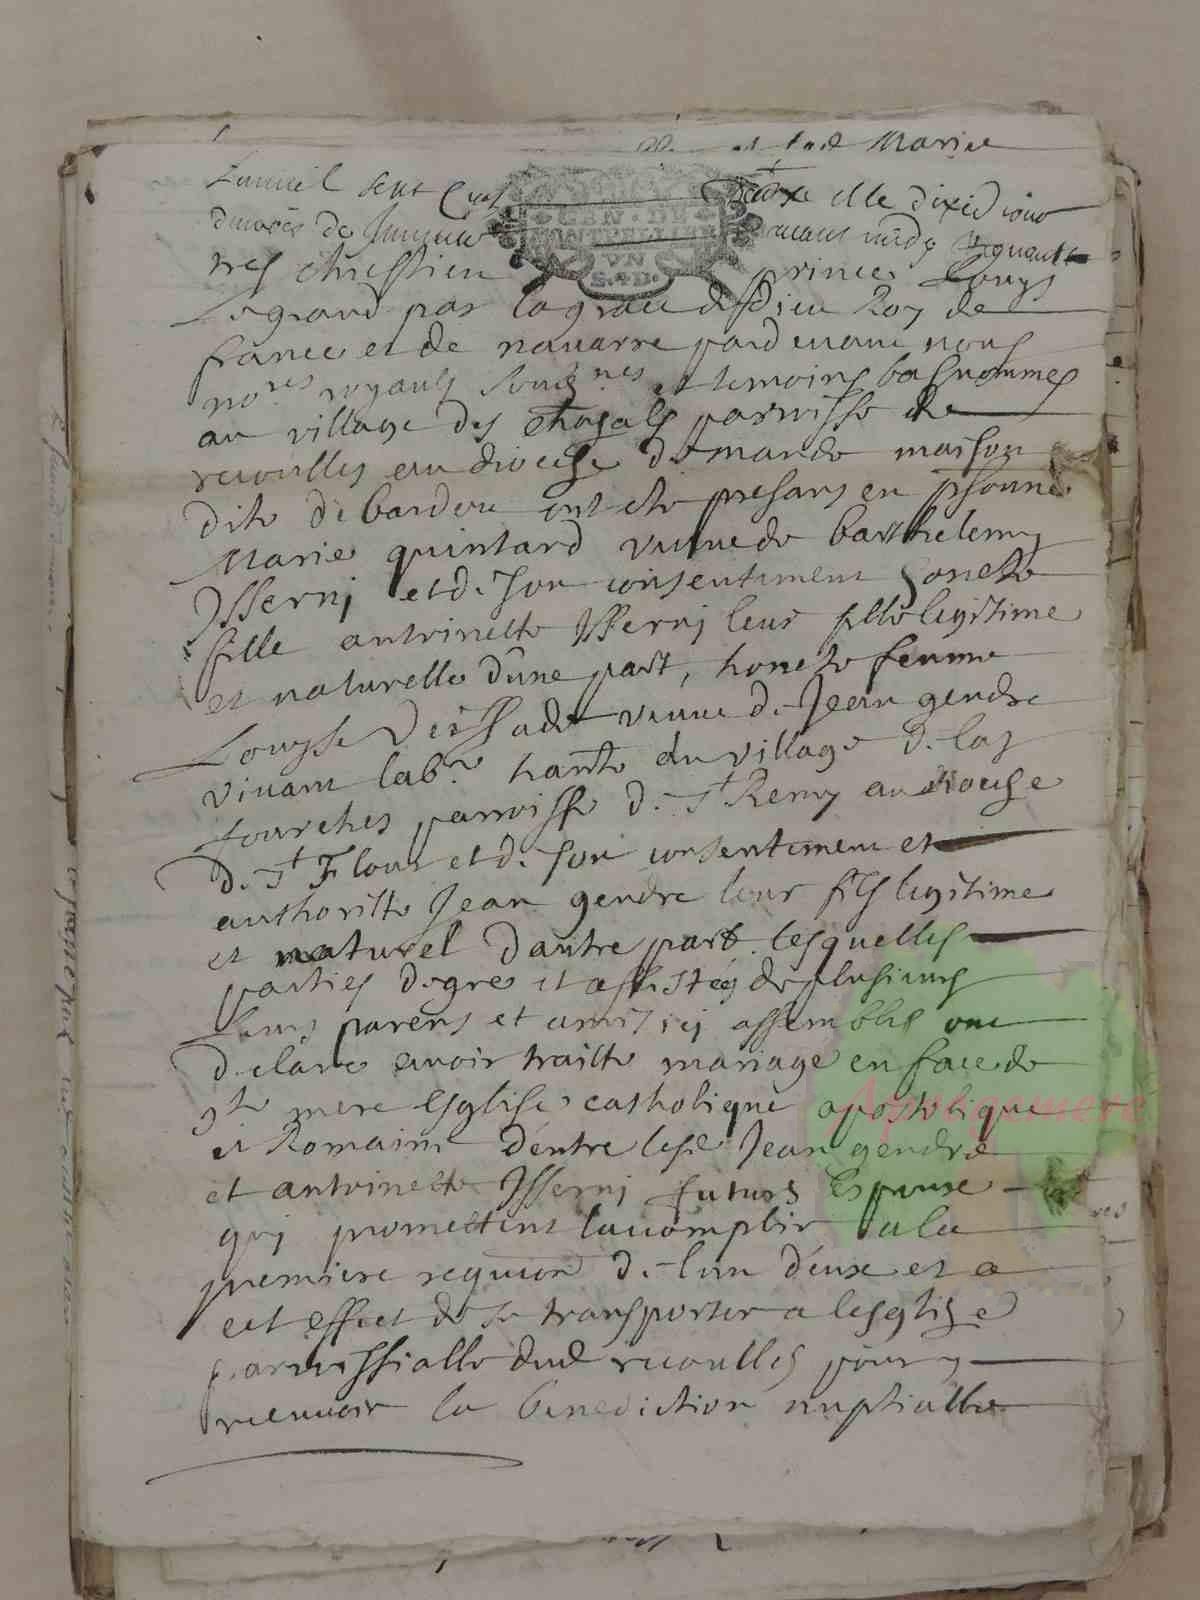 Mariee
Lanmil sept Cens
deuxe et le dixie jour
du mois de Januier
auant midy Regnant
GEN. DE
MONTPELLIER
VN
S. 4 D.
tres chrestien prince Louys
Le grand par la grace de Dieu Roy de
france et de nauarre pardeuant nous
no.res royaulx soubz.nes et temoins bas nommes
au village des Chazals parroisse de
recoulles au dioceze de Mande maison
dite de bardou ont este presans en psonne
Marie quintard veuue de barthelemy
Isserni et de son consentement honeste
fille anthoinette Isserni leur fille legitime
et naturelle dune part, honeste femme
Louyse Veissade veuue de Jean gendre
viuant lab.r habt.e du village de las
fourches parroisse de St Remy au dioceze
de St Flour et de son consentement et
authoritte Jean gendre leur fils legitime
et naturel dautre part lesquelles
parties de gre et assistes de plusieurs
leurs parens et amis icj assembles ont
declare auoir traitte mariage en face de
ste mere Esglise catholique apostolique
et Romaine dentre lesd Jean gendre
et antoinette Isserni futurs Espoux
quj promettent laccomplir a la
premiere requion de lun deux et a
cet effect de se transporter a lesglize
parroissialle dud recoulles pour y
receuoir la benediction nuptialle
Aprogemere